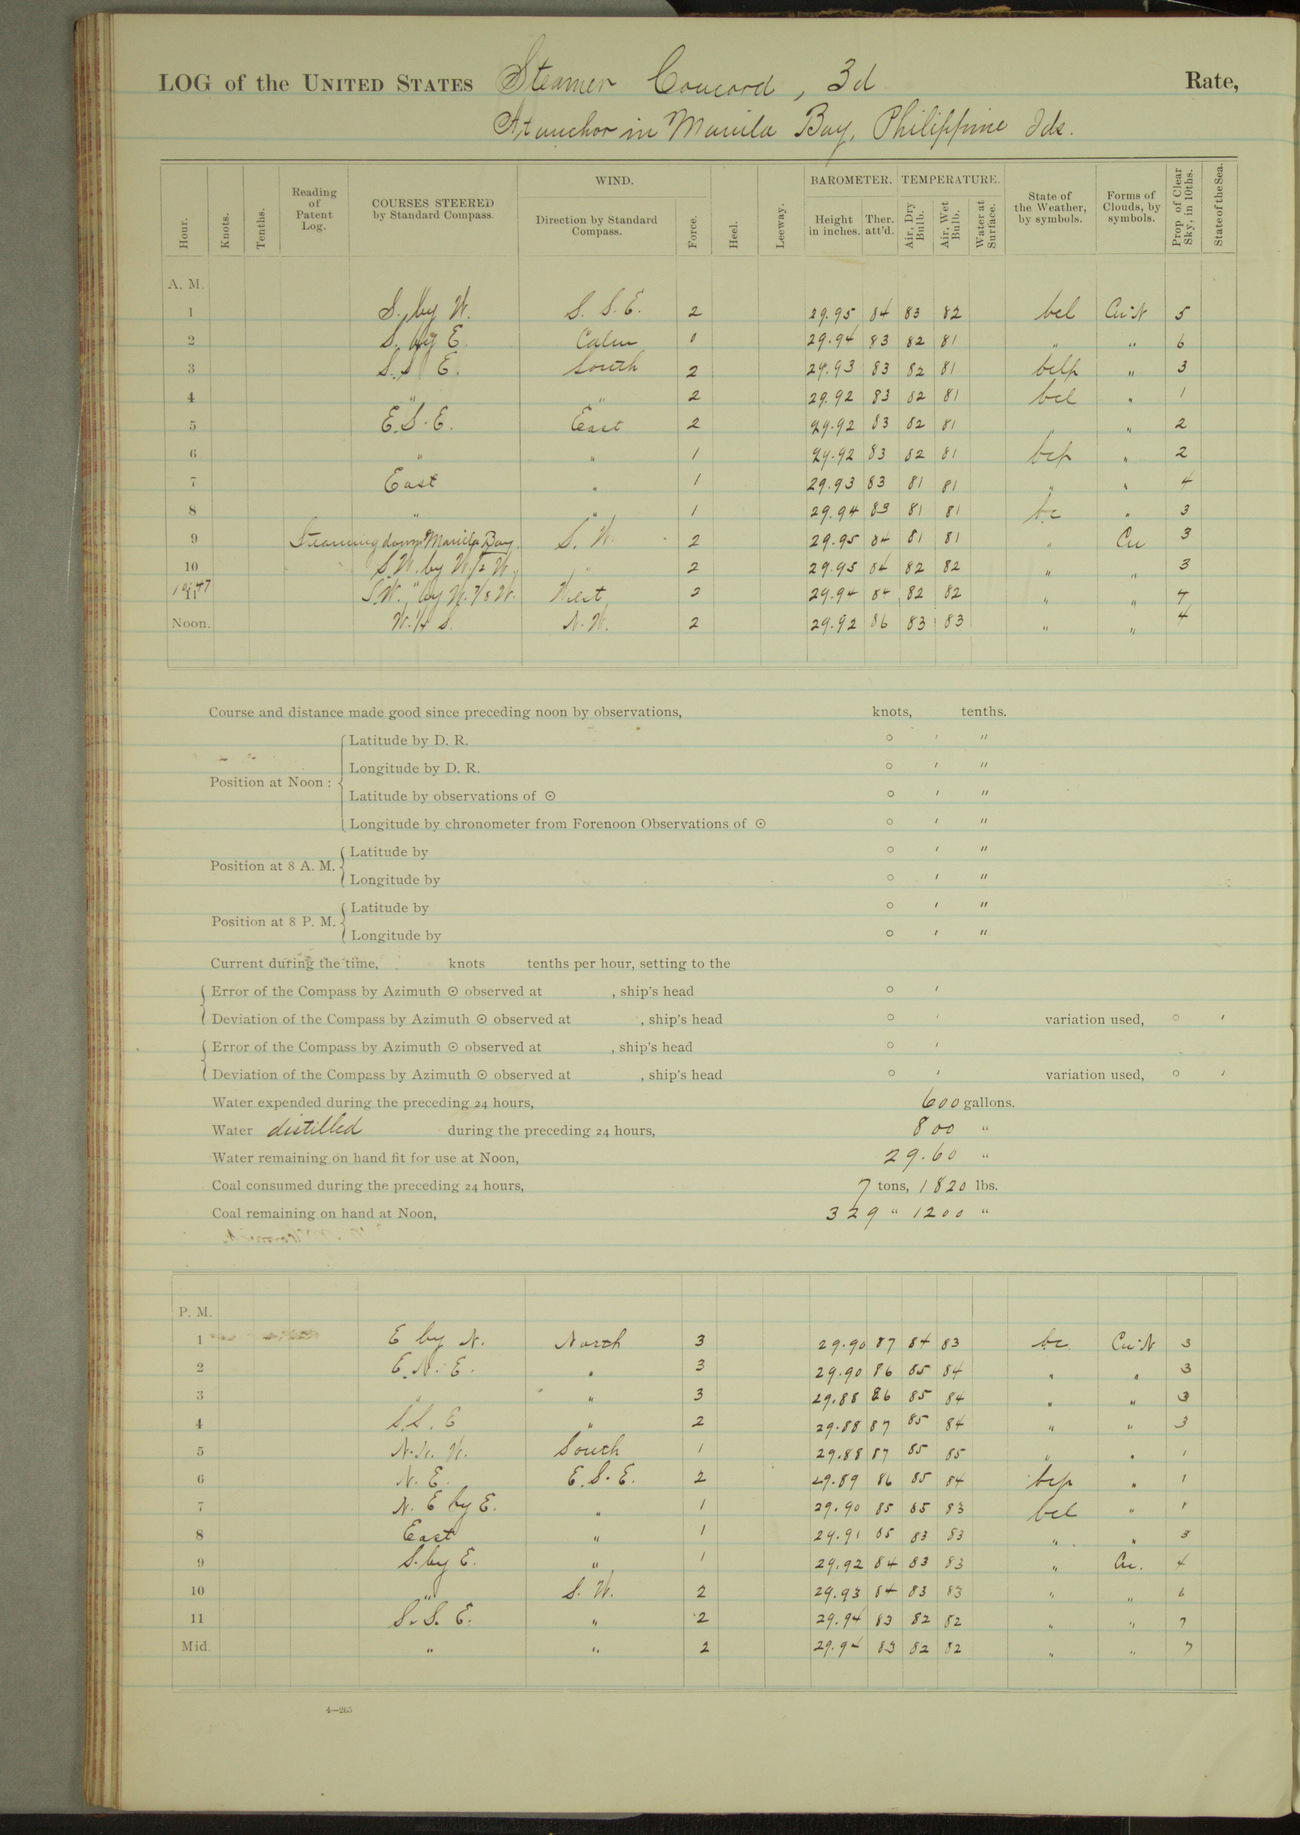 LOG of the UNITED STATES Steamer Concord, 3d Rate,
At anchor in Manila Bay, Philippine Ids.
Hour. Knots. Tenths. Reading of Patent Log. COURSES STEERED by Standard Compass. WIND. Direction by Standard Compass. Force. Heel. Leeway. BAROMETER. Height in inches. Ther. att'd. TEMPERATURE. Air, Dry Bulb. Air, Wet Bulb. Water at Surface. State of the Weather, by symbols. Forms of Clouds, by symbols. Prop of Clear Sky, in 10ths. State of the Sea.
A. M.
1 S. by W. S. S. E. 2 29.95 84 83 82 bcl Cu-N 5
2 S. by E. Calm 0 29.94 83 82 81 " " 6
3 S. S. E. South 2 29.93 83 82 81 bclp " 3
4 " " 2 29.92 83 82 81 bcl " 1
5 E. S. E. East 2 29.92 83 82 81 " " 2
6 " " 1 29.92 83 82 81 bcp " 2
7 East " 1 29.93 83 81 81 " " 4
8 " " 1 29.94 83 81 81 bc " 3
9 Steaming down Manila Bay. S. W. 2 29.95 84 81 81 " Cu 3
10 S.W. by W. 1/2 W. " 2 29.95 84 82 82 " " 3
10:47
11 S.W. by W. 7/8 W. West 2 29.94 84 82 82 " " 7
Noon. W. 1/4 S. N. W. 2 29.92 86 83 83 " " 4
Course and distance made good since preceding noon by observations, knots, tenths.
Position at Noon : Latitude by D. R. ○ ' "
Longitude by D. R. ○ ' "
Latitude by observations of ⊙ ○ ' "
Longitude by chronometer from Forenoon Observations of ⊙ ○ ' "
Position at 8 A. M. Latitude by ○ ' "
Longitude by ○ ' "
Position at 8 P. M. Latitude by ○ ' "
Longitude by ○ ' "
Current during the time, knots tenths per hour, setting to the
Error of the Compass by Azimuth ⊙ observed at , ship's head ○ '
Deviation of the Compass by Azimuth ⊙ observed at , ship's head ○ ' variation used, ○ '
Error of the Compass by Azimuth ⊙ observed at , ship's head ○ '
Deviation of the Compass by Azimuth ⊙ observed at , ship's head ○ ' variation used, ○ '
Water expended during the preceding 24 hours, 600 gallons.
Water distilled during the preceding 24 hours, 800 "
Water remaining on hand fit for use at Noon, 29.60 "
Coal consumed during the preceding 24 hours, 7 tons, 1820 lbs.
Coal remaining on hand at Noon, 329 " 1200 "
P. M.
1 E by N. North 3 29.90 87 84 83 bc Cu-N 3
2 E. N. E. " 3 29.90 86 85 84 " " 3
3 " " 3 29.88 86 85 84 " " 3
4 S. S. E " 2 29.88 87 85 84 " " 3
5 N. N. W. South 1 29.88 87 85 85 " " 1
6 N. E. E. S. E. 2 29.89 86 85 84 bcp " 1
7 N. E by E. " 1 29.90 85 85 83 bcl " 1
8 East " 1 29.91 85 83 83 " " 3
9 S. by E. " 1 29.92 84 83 83 " Cu. 4
10 " S. W. 2 29.93 84 83 83 " " 6
11 S. S. E. " 2 29.94 83 82 82 " " 7
Mid. " " 2 29.94 83 82 82 " " 7
4—265